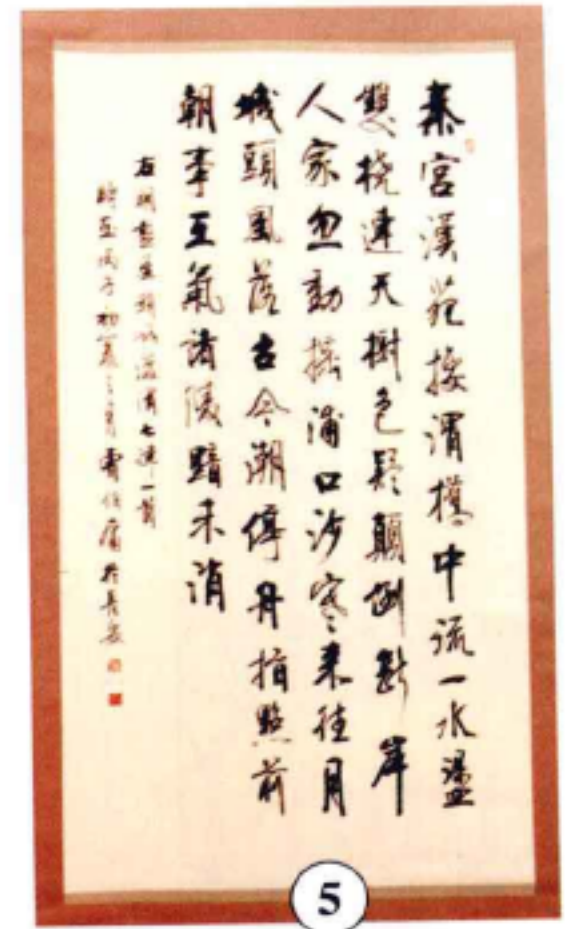 秦宮漢苑接渭橋中流一水盪
雙橈連天樹色疑顛倒斷岸
人家忽動摇浦口沙寒来往月
城頭風落古今潮停舟指點前
朝事王氣諸陵黯未消
右明
七律一首
時丙子初 之月 於長安
5